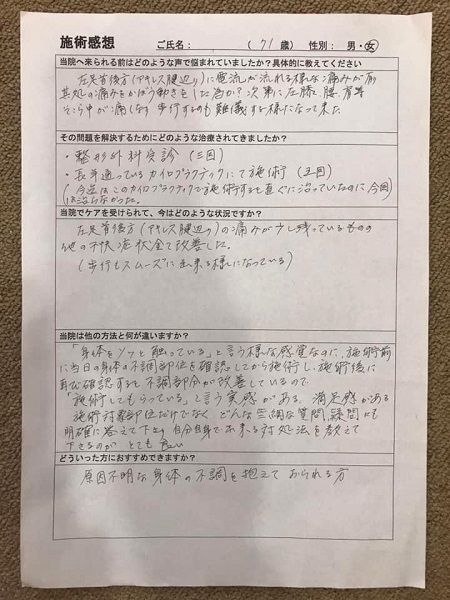 施術感想 ご氏名： （71歳） 性別： 男・女
当院へ来られる前はどのような声で悩まれていましたか？具体的に教えてください
左足首後方(アキレス腱辺り)に電流が流れる様な痛みが有
其処の痛みをかばう動きをした為か？次第に左膝、腰、肩等
そこら中が痛くなり歩行するのも難儀する様になって来た。
その問題を解決するためにどのような治療されてきましたか？
・整形外科受診 (三回)
・長年通っているカイロプラクティックにて施術 (五回)
(今迄はこのカイロプラクティックで施術すると直ぐに治っていたのに今回
は治らなかった。)
当院でケアを受けられて、今はどのような状況ですか？
左足首後方(アキレス腱辺り)の痛みが少し残っているものの
他の不快症状全て改善した。
(歩行もスムーズに出来る様になっている)
当院は他の方法と何が違いますか？
「身体をソフと触っている」と言う様な感覚なのに、施術前
に当日の身体の不調部位を確認してから施術し、施術後に
再び確認すると不調部分が改善しているので
「施術してもらっている」と言う実感がある。満足感がある
施術対象部位だけでなく どんな些細な質問、疑問にも
明確に答えて下さり 自分自身で出来る対処法を教えて
下さるのが とても良い
どういった方におすすめできますか？
原因不明な身体の不調を抱えておられる方